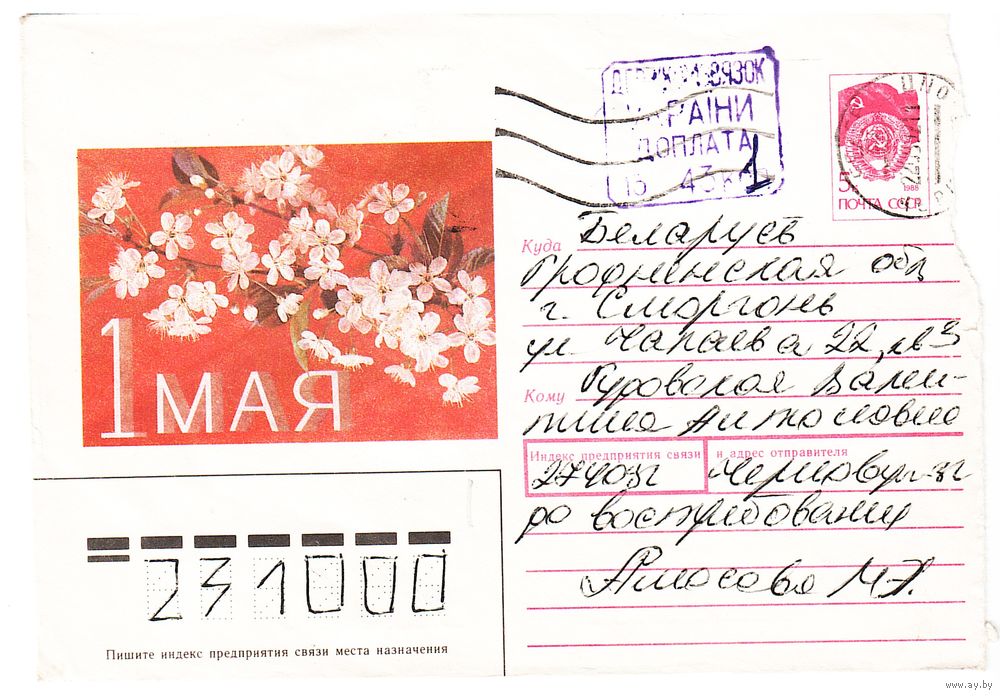 ДЕРЖКОМЗВЯЗОК
УКРАЇНИ
ДОПЛАТА
15 43 к
5
1988
ПОЧТА СССР
1 МАЯ
Куда Беларусь
Гродненская обл
г. Сморгонь
ул. Чапаева 22, кв 3
Кому Гуровская Вален-
тина Антоновна
Индекс предприятия связи и адрес отправителя
274031 Черновцы-31
до востребования
Амосова М.Л.
231000
Пишите индекс предприятия связи места назначения
www.ay.by